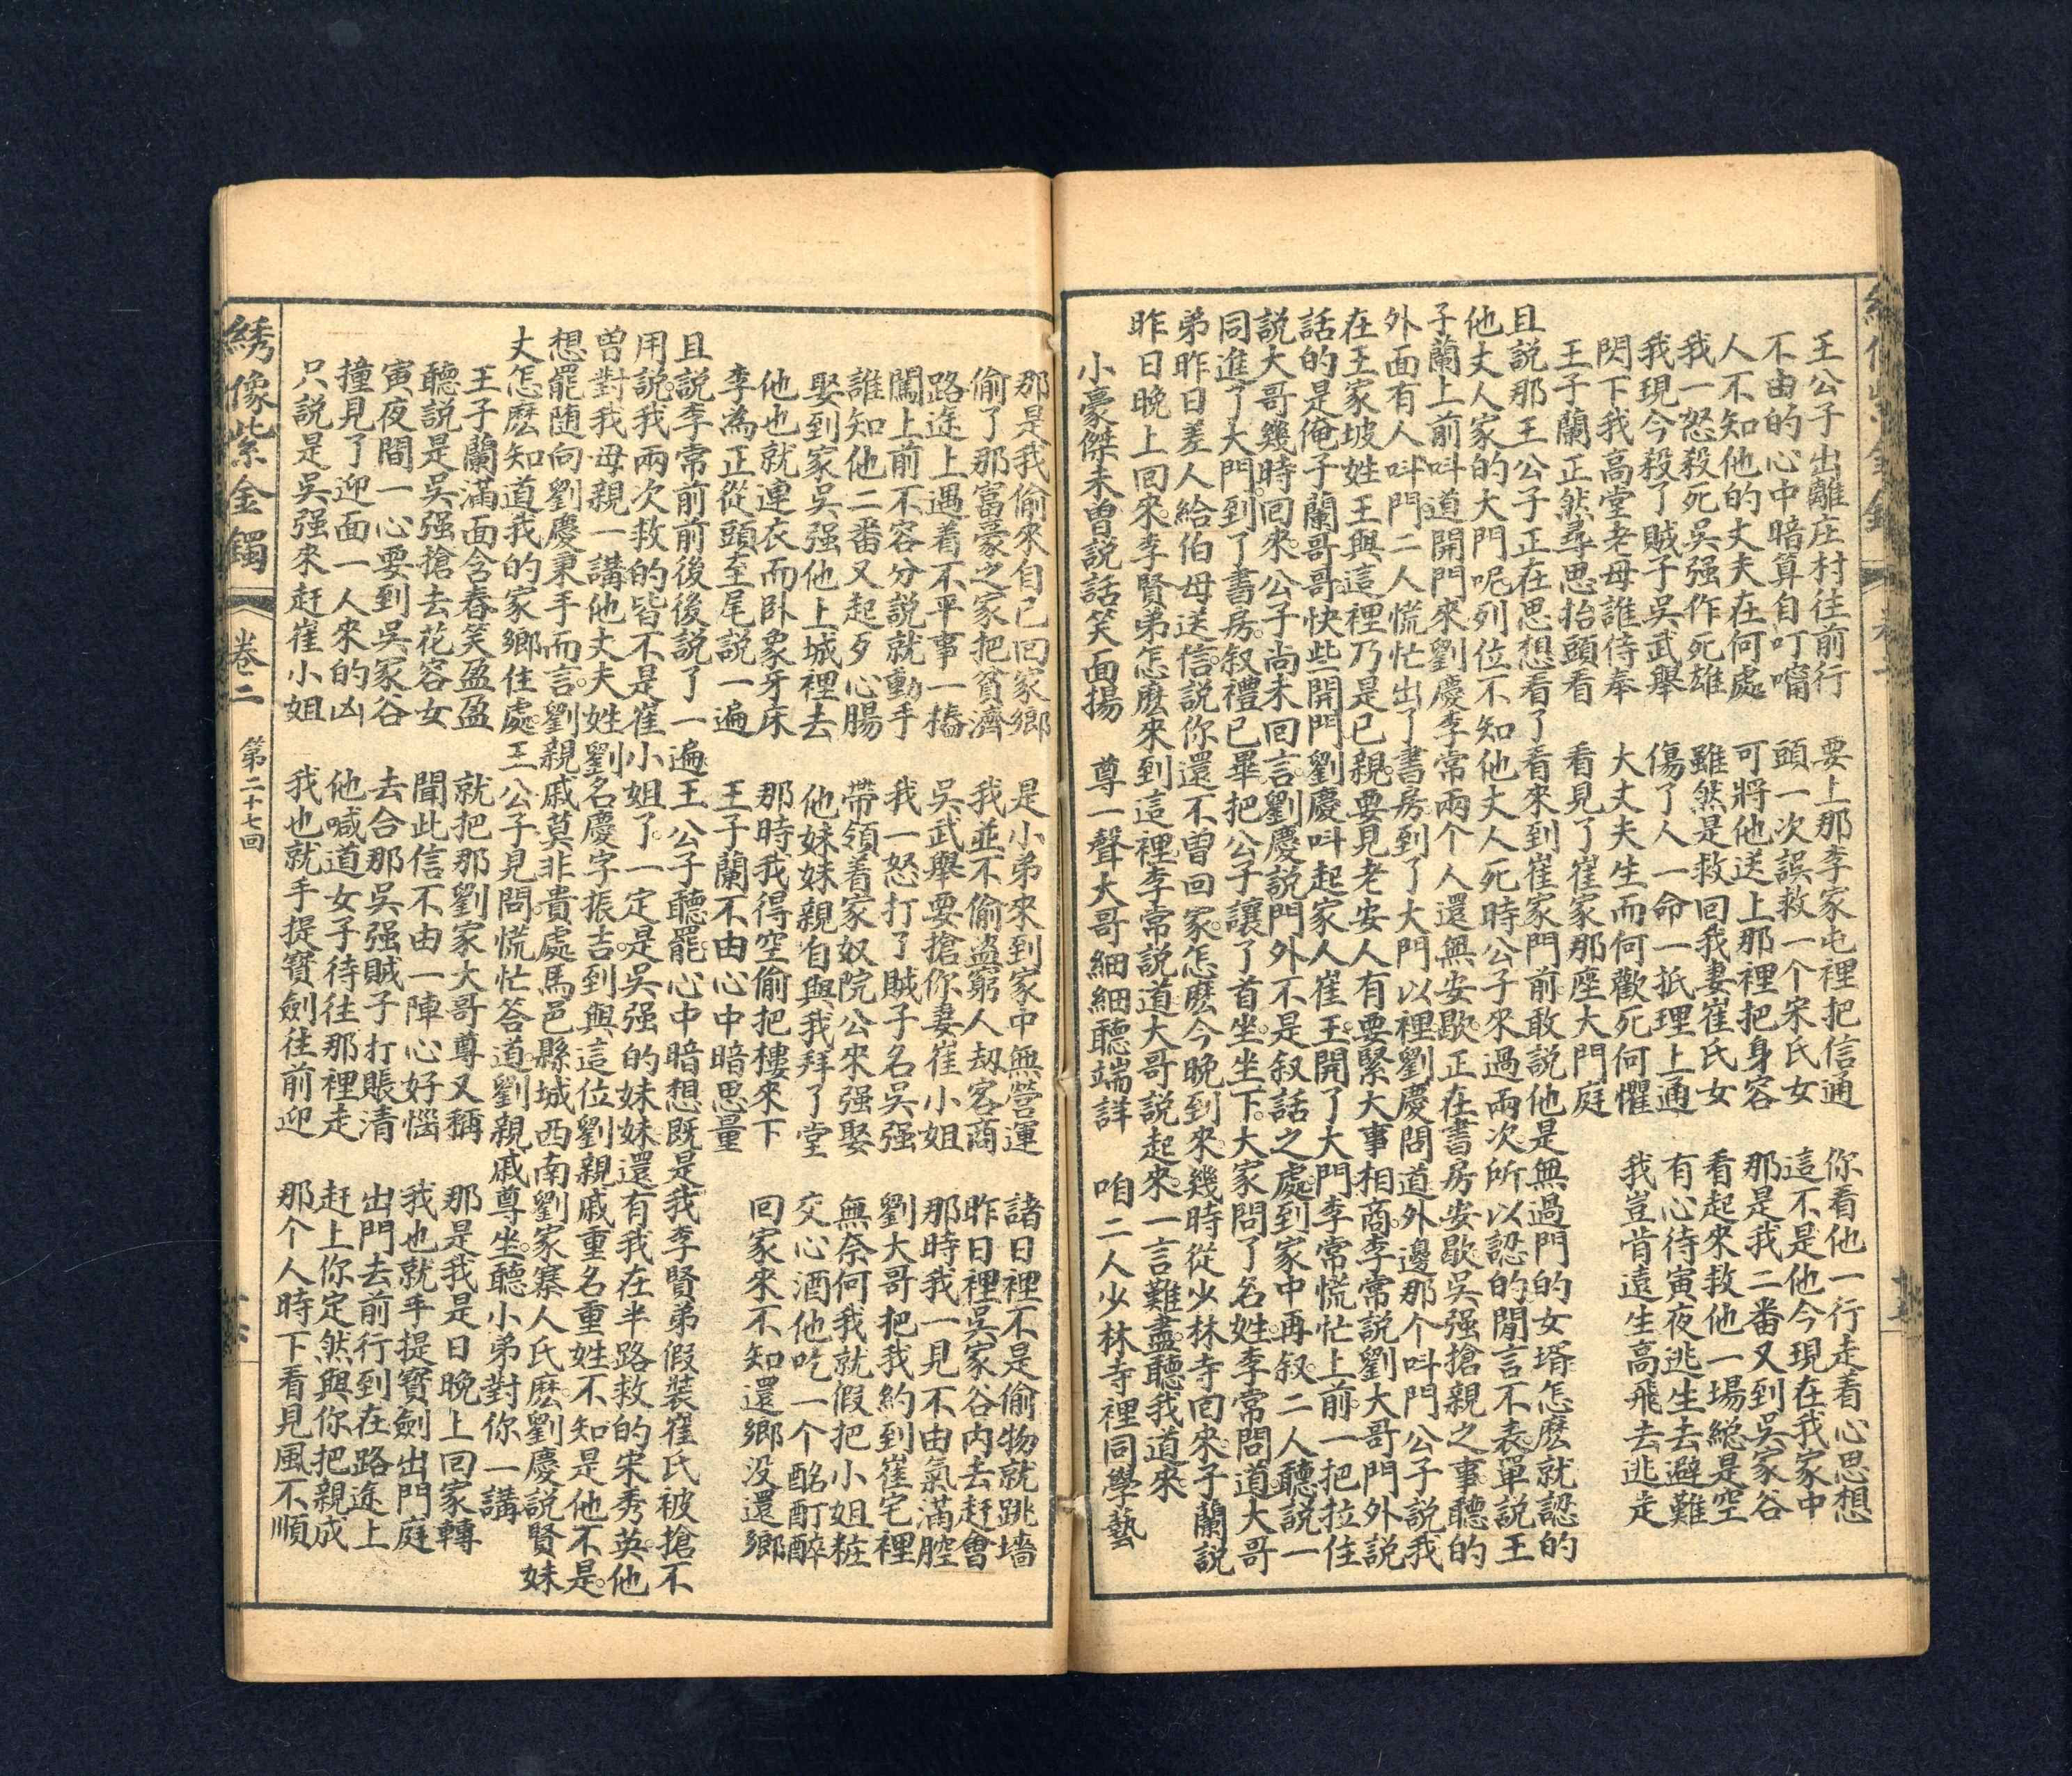 王公子出離庄村往前行　要上那李家屯裡把信通　你看他一行走着心思想
不由的心中暗算自叮嚀　頭一次誤救一个宋氏女　這不是他今現在我家中
人不知他的丈夫在何處　可將他送上那裡把身容　那是我二番又到吳家谷
我一怒殺死吳强作死雄　雖然是救回我妻崔氏女　看起來救他一場総是空
我現今殺了賊子吳武舉　傷了人一命一抵理上通　有心待寅夜逃生去避難
閃下我高堂老母誰侍奉　大丈夫生而何歡死何懼　我豈肯遠生高飛去逃走
王子蘭正然尋思抬頭看　看見了崔家那座大門庭
且說那王公子正在思想看了看來到崔家門前敢說他是無過門的女壻怎麽就認的
他丈人家的大門呢列位不知他丈人死時公子來過兩次所以認的閒言不表單説王
子蘭上前呌道開門來劉慶李常兩个人還無安歇正在書房安歇吳强搶親之事聽的
外面有人呌門二人慌忙出了書房到了大門以裡劉慶問道外邊那个呌門公子説我
在王家坡姓王與這裡乃是已親要見老安人有要緊大事相商李常説劉大哥門外説
話的是俺子蘭哥哥快些開門劉慶呌起家人崔王開了大門李常慌忙上前一把拉住
説大哥幾時回來公子尚未回言劉慶説門外不是叙話之處到家中再叙二人聽説一
同進了大門到了書房叙禮已畢把公子讓了首坐坐下大家問了名姓李常問道大哥
弟昨日差人給伯母送信説你還不曾回家怎麽今晚到來幾時從少林寺回來子蘭説
昨日晚上回來李賢弟怎麽來到這裡李常説道大哥説起來一言難盡聽我道來
小豪傑未曾説話笑面揚　尊一聲大哥細細聽端詳　咱二人少林寺裡同學藝
那是我偷來自己回家鄉　是小弟來到家中無營運　諸日裡不是偷物就跳墻
偷了那富豪之家把貧濟　我並不偷盗窮人刼客商　昨日裡吳家谷内去赶會
路途上遇着不平事一樁　吳武舉要搶你妻崔小姐　那時我一見不由氣滿腔
闖上前不容分説就動手　我一怒打了賊子名吳强　劉大哥把我約到崔宅裡
誰知他二番又起歹心腸　帶領着家奴院公來强娶　無奈何我就假把小姐粧
娶到家吳强他上城裡去　他妹妹親自與我拜了堂　交心酒他吃一个酩酊醉
他也就連衣而卧象牙床　那時我得空偷把樓來下　回家來不知還鄉没還鄉
李為正從頭至尾説一遍　王子蘭不由心中暗思量
且説李常前前後後説了一遍王公子聽罷心中暗想既是我李賢弟假裝崔氏被搶不
用説我兩次救的皆不是崔小姐了一定是吳强的妹妹還有我在半路救的宋秀英他
曽對我母親一講他丈夫姓劉名慶字振吉到與這位劉親戚重名重姓不知是他不是
想罷随向劉慶秉手而言劉親戚莫非貴處馬邑縣城西南劉家寨人氏麽劉慶説賢妹
丈怎麽知道我的家鄉住處王公子見問慌忙答道劉親戚尊坐聽小弟對你一講
王子蘭滿面含春笑盈盈　就把那劉家大哥尊又稱　那是我是日晚上回家轉
聽説是吳强搶去花容女　聞此信不由一陣心好惱　我也就手提寳劍出門庭
寅夜間一心要到吳家谷　去合那吳强賊子打賬清　出門去前行到在路途上
撞見了迎面一人來的凶　他喊道女子待往那裡走　赶上你定然與你把親成
只説是吳强來赶崔小姐　我也就手提寳劍往前迎　那个人時下看見風不順
綉像紫金鐲
卷二
第二十七回